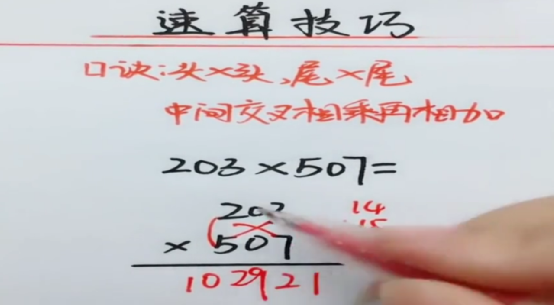 速算技巧
口诀:头×头,尾×尾
中间交叉相乘再相加
203×507=
203
14
×507
15
102921